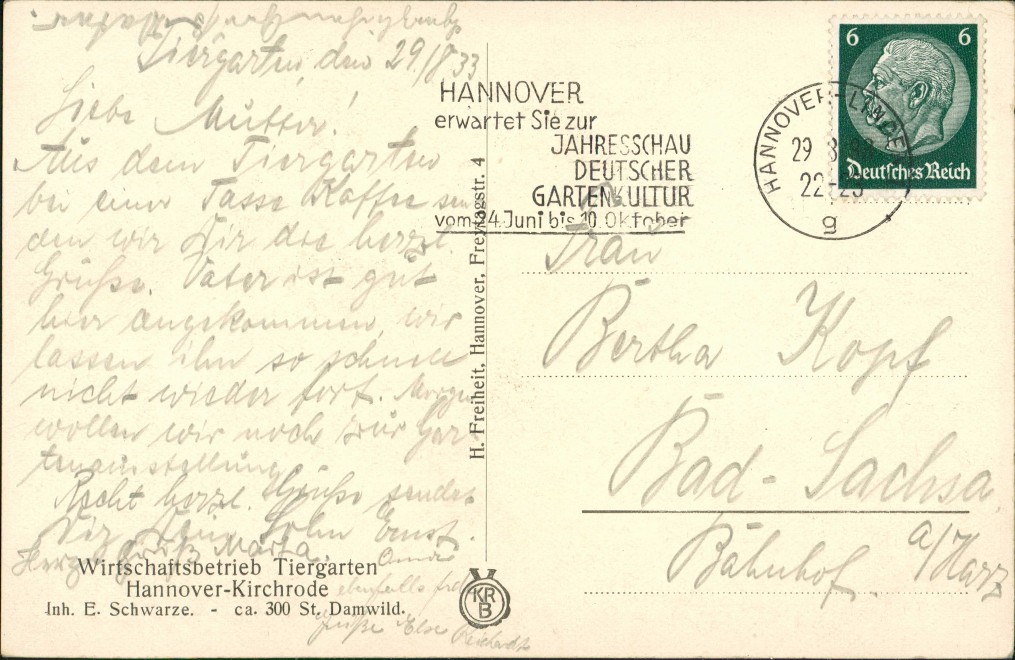 Tiergarten, den 29/8 33
Liebe Mutter!
Aus dem Tiergarten
bei einer Tasse Kaffee sen
den wir Dir die herzl.
Grüße. Vater ist gut
hier angekommen, wir
lassen ihn so schnell
nicht wieder fort. Morgen
wollen wir noch zur Gar-
tenausstellung
Recht herzl. Grüße sendet
Dir Dein Sohn Ernst.
Herzl. Grüße Marta.
ebenfalls
Grüße Else
Wirtschaftsbetrieb Tiergarten
Hannover-Kirchrode
Inh. E. Schwarze. - ca. 300 St. Damwild.
H. Freiheit, Hannover, Freytagstr. 4
KR
B
HANNOVER
erwartet Sie zur
JAHRESSCHAU
DEUTSCHER
GARTENKULTUR
vom 24. Juni bis 10. Oktober
HANNOVER-LINDEN
29 8
22-23
g
6 6
Deutsches Reich
Frau
Bertha Kopf
Bad-Sachsa
a/Harz
Bahnhof.